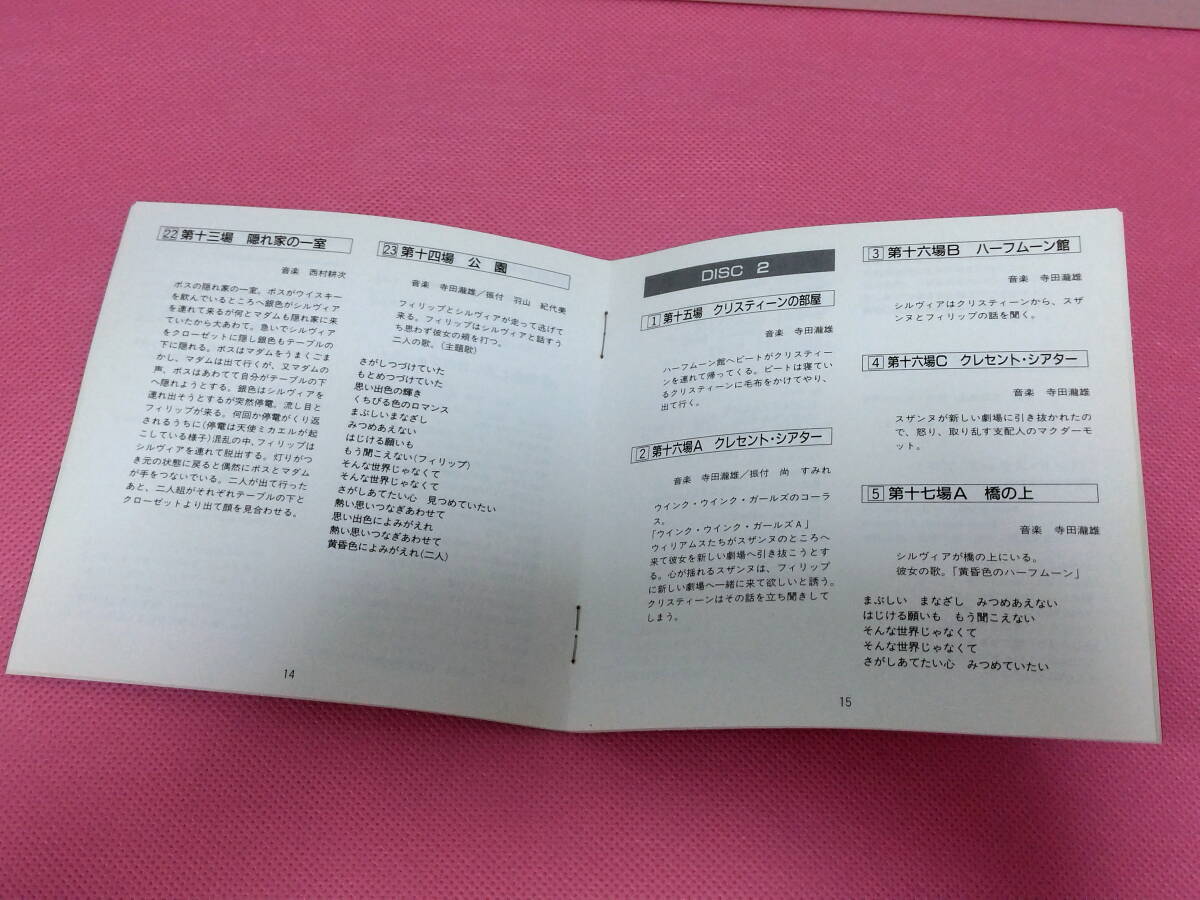 22 第十三場 隠れ家の一室
音楽 西村耕次
ボスの隠れ家の一室。ボスがウイスキー
を飲んでいるところへ銀色がシルヴィア
を連れて来るが何とマダムも隠れ家に来
ていたから大あわて。急いでシルヴィア
をクローゼットに隠し銀色もテーブルの
下に隠れる。ボスはマダムをうまくごま
かし、マダムは出て行くが、又マダムの
声、ボスはあわてて自分がテーブルの下
へ隠れようとする。銀色はシルヴィアを
連れ出そうとするが突然停電。流し目と
フィリップが来る。何回か停電がくり返
されるうちに(停電は天使ミカエルが起
こしている様子)混乱の中、フィリップは
シルヴィアを連れて脱出する。灯りがつ
き元の状態に戻ると偶然にボスとマダム
が手をつないでいる。二人が出て行った
あと、二人組がそれぞれテーブルの下と
クローゼットより出て顔を見合わせる。
23 第十四場 公園
音楽 寺田瀧雄/振付 羽山 紀代美
フィリップとシルヴィアが走って逃げて
来る。フィリップはシルヴィアと話すう
ち思わず彼女の頬を打つ。
二人の歌。(主題歌)
さがしつづけていた
もとめつづけていた
思い出色の輝き
くちびる色のロマンス
まぶしいまなざし
みつめあえない
はじける願いも
もう聞こえない(フィリップ)
そんな世界じゃなくて
そんな世界じゃなくて
さがしあてたい心 見つめていたい
熱い思いつなぎあわせて
思い出色によみがえれ
熱い思いつなぎあわせて
黄昏色によみがえれ(二人)
14
DISC 2
1 第十五場 クリスティーンの部屋
音楽 寺田瀧雄
ハーフムーン館へピートがクリスティー
ンを連れて帰ってくる。ピートは寝てい
るクリスティーンに毛布をかけてやり、
出て行く。
2 第十六場A クレセント・シアター
音楽 寺田瀧雄/振付 尚 すみれ
ウインク・ウインク・ガールズのコーラ
ス。
「ウインク・ウインク・ガールズA」
ウィリアムスたちがスザンヌのところへ
来て彼女を新しい劇場へ引き抜こうとす
る。心が揺れるスザンヌは、フィリップ
に新しい劇場へ一緒に来て欲しいと誘う。
クリスティーンはその話を立ち聞きして
しまう。
3 第十六場B ハーフムーン館
音楽 寺田瀧雄
シルヴィアはクリスティーンから、スザ
ンヌとフィリップの話を聞く。
4 第十六場C クレセント・シアター
音楽 寺田瀧雄
スザンヌが新しい劇場に引き抜かれたの
で、怒り、取り乱す支配人のマクダーモ
ット。
5 第十七場A 橋の上
音楽 寺田瀧雄
シルヴィアが橋の上にいる。
彼女の歌。「黄昏色のハーフムーン」
まぶしい まなざし みつめあえない
はじける願いも もう聞こえない
そんな世界じゃなくて
そんな世界じゃなくて
さがしあてたい心 みつめていたい
15